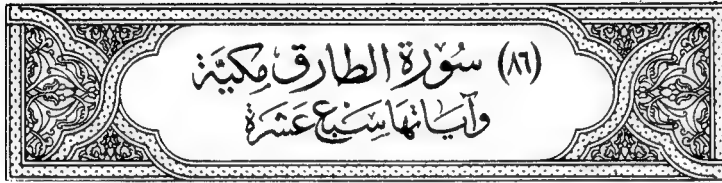 (٨٦) سُورَة الطارق مكيَّة
وَآيَاتهَا سَبْع عَشَرَة